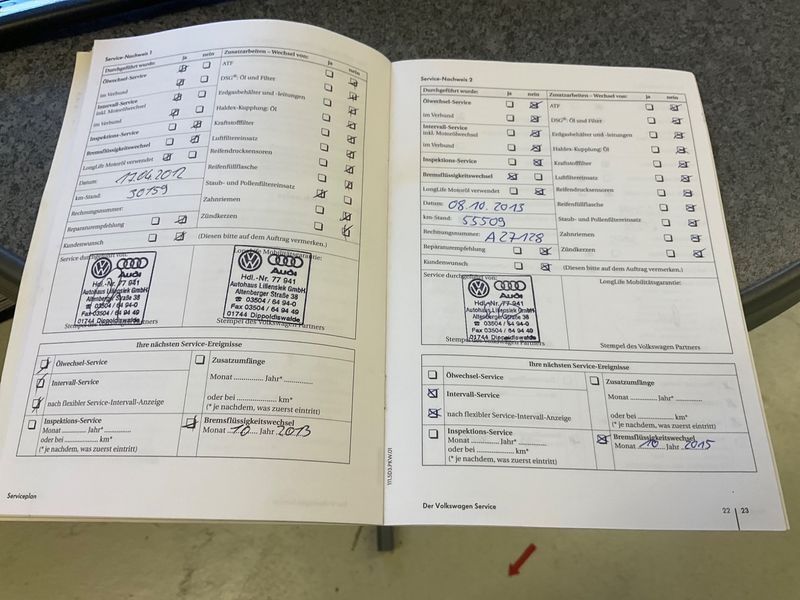 Service-Nachweis 1
Durchgeführt wurde: ja nein
Ölwechsel-Service
im Verbund
Intervall-Service
inkl. Motorölwechsel
im Verbund
Inspektions-Service
Bremsflüssigkeitswechsel
LongLife Motoröl verwendet
Datum: 17.04.2012
km-Stand: 30159
Rechnungsnummer:
Reparaturempfehlung
Kundenwunsch
Zusatzarbeiten – Wechsel von: ja nein
ATF
DSG®: Öl und Filter
Erdgasbehälter und -leitungen
Haldex-Kupplung: Öl
Kraftstofffilter
Luftfiltereinsatz
Reifendrucksensoren
Reifenfüllflasche
Staub- und Pollenfiltereinsatz
Zahnriemen
Zündkerzen
(Diesen bitte auf dem Auftrag vermerken.)
Service durchgeführt von:
Audi
Hdl.-Nr. 77 941
Autohaus Liliensiek GmbH
Altenberger Straße 38
☎ 03504 / 64 94-0
Fax 03504 / 64 94 49
01744 Dippoldiswalde
Stempel des Volkswagen Partners
LongLife Mobilitätsgarantie:
Audi
Hdl.-Nr. 77 941
Autohaus Liliensiek GmbH
Altenberger Straße 38
☎ 03504 / 64 94-0
Fax 03504 / 64 94 49
01744 Dippoldiswalde
Stempel des Volkswagen Partners
Ihre nächsten Service-Ereignisse
Ölwechsel-Service
Intervall-Service
nach flexibler Service-Intervall-Anzeige
Zusatzumfänge
Monat ............... Jahr* ...............
oder bei ............... km*
(* je nachdem, was zuerst eintritt)
Inspektions-Service
Monat ............ Jahr* ............
oder bei ............... km*
(* je nachdem, was zuerst eintritt)
Bremsflüssigkeitswechsel
Monat 10 Jahr 2013
Serviceplan
Service-Nachweis 2
Durchgeführt wurde: ja nein
Ölwechsel-Service
im Verbund
Intervall-Service
inkl. Motorölwechsel
im Verbund
Inspektions-Service
Bremsflüssigkeitswechsel
LongLife Motoröl verwendet
Datum: 08.10.2013
km-Stand: 55509
Rechnungsnummer: A27128
Reparaturempfehlung
Kundenwunsch
Zusatzarbeiten – Wechsel von: ja nein
ATF
DSG®: Öl und Filter
Erdgasbehälter und -leitungen
Haldex-Kupplung: Öl
Kraftstofffilter
Luftfiltereinsatz
Reifendrucksensoren
Reifenfüllflasche
Staub- und Pollenfiltereinsatz
Zahnriemen
Zündkerzen
(Diesen bitte auf dem Auftrag vermerken.)
Service durchgeführt von:
Audi
Hdl.-Nr. 77 941
Autohaus Liliensiek GmbH
Altenberger Straße 38
☎ 03504 / 64 94-0
Fax 03504 / 64 94 49
01744 Dippoldiswalde
Stempel des Volkswagen Partners
LongLife Mobilitätsgarantie:
Stempel des Volkswagen Partners
Ihre nächsten Service-Ereignisse
Ölwechsel-Service
Intervall-Service
nach flexibler Service-Intervall-Anzeige
Zusatzumfänge
Monat ............ Jahr* ............
oder bei ............... km*
(* je nachdem, was zuerst eintritt)
Inspektions-Service
Monat ............ Jahr* ............
oder bei ............... km*
(* je nachdem, was zuerst eintritt)
Bremsflüssigkeitswechsel
Monat 10 Jahr 2015
Der Volkswagen Service
22 | 23